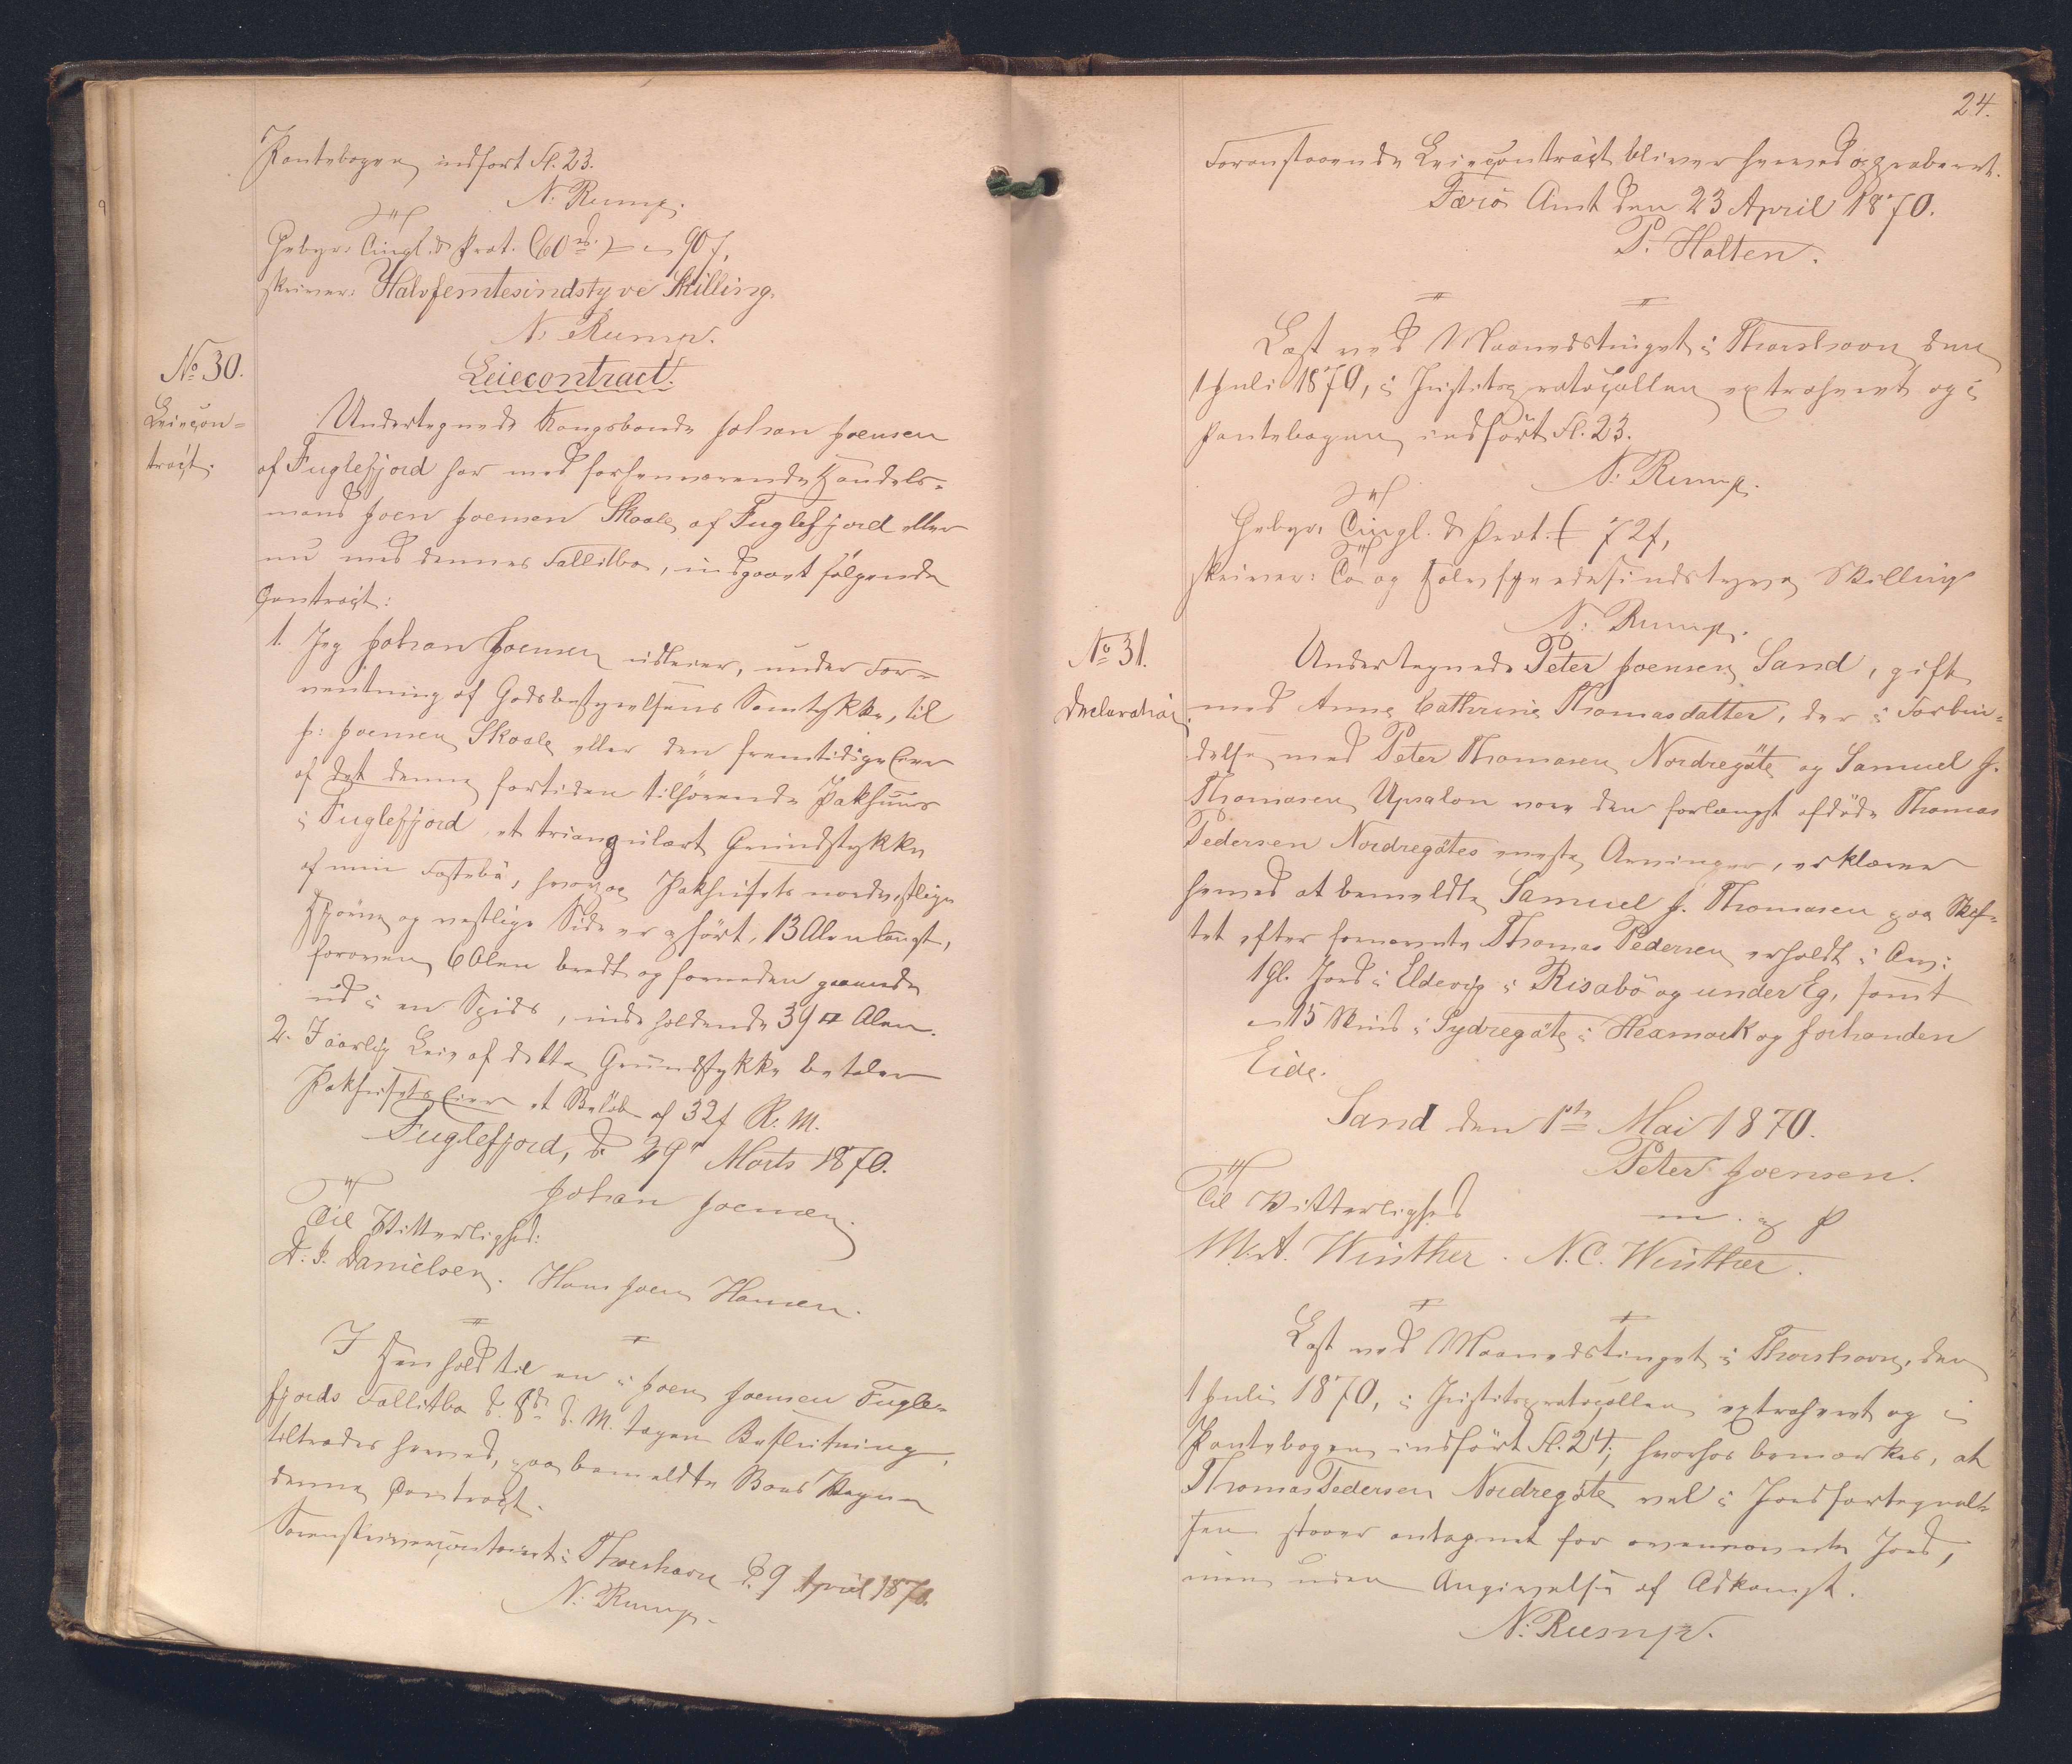 Pantebogen indført Fl. 23.
N. Rump.
Gebyr: Tingl. & Prot. (60 rd.) = 90 f,
skriver: Halvfemtesindstyve Skilling.
N. Rump.
No 30.
Leiecontract.
Leiecon=
tract.
Undertegnede Kongsbonde Johan Joensen
af Fuglefjord har med forhenværende Handels=
mand Joen Joensen Skaale af Fuglefjord eller
nu med dennes Fallitbo, indgaaet følgende
Contract:
1. Jeg Johan Joensen udleier, under For=
ventning af Godsbestyrelsens Samtykke, til
J: Joensen Skaale eller den fremtidige Eier
af det denne fortiden tilhørende Pakhuus
i Fuglefjord, et triangulært Grundstykke
af min Fæstebø, hvorpaa Pakhusets nordvestlige
Hjørne og vestlige Side er opført, 13 Alen langt,
foroven 6 Alen bredt og forneden gaaende
ud i en Spids, indeholdende 39 □ Alen.
2. I aarlig Leie af dette Grundstykke betaler
Pakhusets Eier et Beløb af 32 f R. M.
Fuglefjord, d. 29 Marts 1870.
Johan Joensen.
Til Vitterlighed:
D. J. Danielsen. Hans Joen Hansen.
I Henhold til en i Joen Joensen Fugle=
fjords Fallitbo d. 8de d. M. tagen Beslutning,
tiltrædes herved, paa bemeldte Boes Vegne
denne Contract.
Sorenskrivercontoiret i Thorshavn d. 9 April 1870.
N. Rump.
24.
Foranstaaende Leiecontract bliver herved approberet.
Færø Amt den 23 April 1870.
P. Holten.
Læst ved Maanedstinget i Thorshavn den
1 Juli 1870, i Justitsprotocollen extraheret og i
Pantebogen indført Fl. 23.
N. Rump.
Gebyr: Tingl. & Prot. f 72 f,
skriver: To og Halvfjerdesindstyve Skilling
N: Rump.
No 31.
Declaration.
Undertegnede Peter Joensen Sand, gift
med Anne Cathrine Thomasdatter, der i Forbin=
delse med Peter Thomasen Nordregøte og Samuel J.
Thomasen Upsalon vare den forlængst afdøde Thomas
Pedersen Nordregøtes eneste Arvinger, erklærer
herved at bemeldte Samuel J. Thomasen paa Skif=
tet efter fornævnte Thomas Pedersen erholdt i Arv:
1 Gl. Jord i Eldevig i Risabø og under Eg, samt
15 Skind i Sydregøte i Heamork og forhanden
Eide.
Sand den 1ste Mai 1870.
Peter Joensen.
m. p. P
Til Vitterlighed
M. A. Winther. N. C. Winther.
Læst ved Maanedstinget i Thorshavn, den
1 Juli 1870, i Justitsprotocollen extraheret og i
Pantebogen indført Fl. 24, hvorhos bemærkes, at
Thomas Pedersen Nordregøte vel i Jordfortegnel=
sen staaer antegnet for ovennævnte Jord,
men uden Angivelse af Adkomst.
N: Rump.